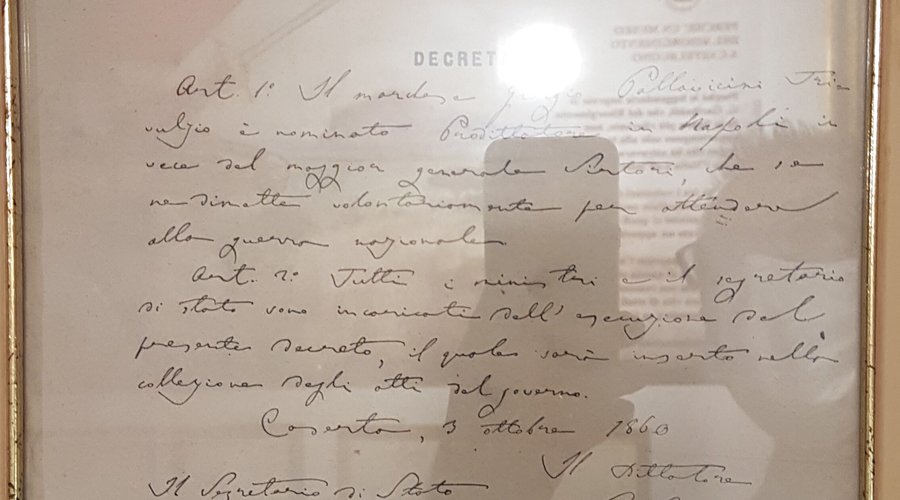 DECRET
Art. 1º Il marchese Giorgio Pallavicini Tri=
vulzio è nominato Prodittatore in Napoli in
vece del maggior generale Sirtori, che se
ne dimette volontariamente per attendere
alla guerra nazionale.
Art. 2º Tutti i ministri e il segretario
di stato sono incaricati dell' esecuzione del
presente decreto, il quale sarà inserto nella
collezione degli atti del governo.
Caserta, 3 ottobre 1860
Il Dittatore
Il Segretario di Stato